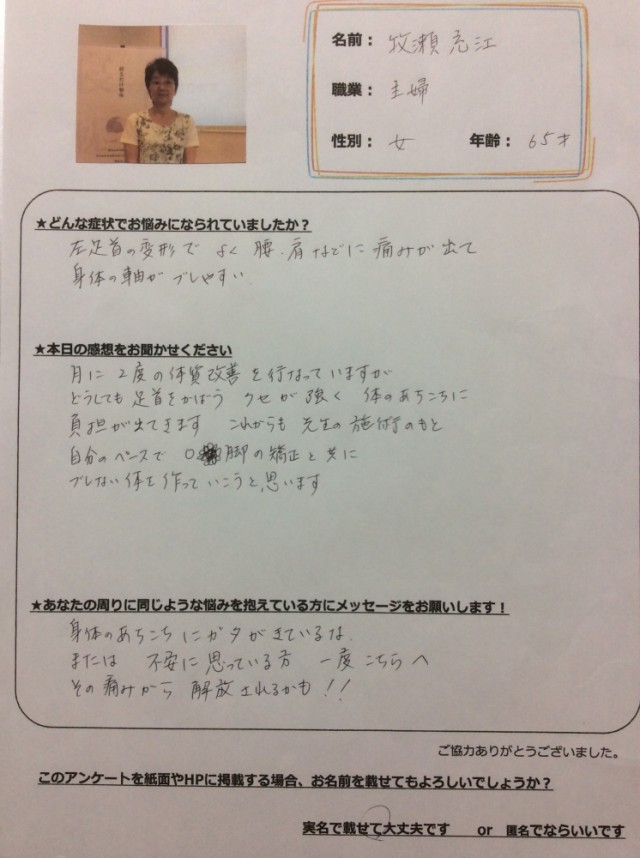 名前： 牧瀬充江
職業： 主婦
性別： 女 年齢： 65才
★どんな症状でお悩みになられていましたか？
左足首の変形で よく 腰、肩などに 痛みが 出て
身体の軸が ブレやすい
★本日の感想をお聞かせください
月に 2度の体質改善を行なっていますが
どうしても 足首をかばう クセが 強く 体のあちこちに
負担が出てきます これからも 先生の施術のもと
自分のペースで O脚の矯正と共に
ブレない体を作っていこうと思います
★あなたの周りに同じような悩みを抱えている方にメッセージをお願いします！
身体のあちこちにガタがきているな、
または 不安に思っている方 一度こちらへ
その痛みから 解放されるかも！！
ご協力ありがとうございました。
このアンケートを紙面やHPに掲載する場合、お名前を載せてもよろしいでしょうか？
実名で載せて大丈夫です or 匿名でならいいです